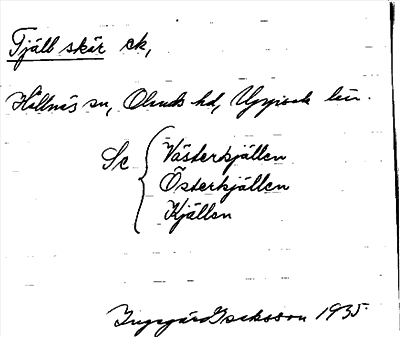 Tjäll skär ek,
Hållnäs sn, Olands hd, Uppsala län.
Se { Västerkjällen
Österkjällen
Kjällen
Ingegärd Isaksson 1935.